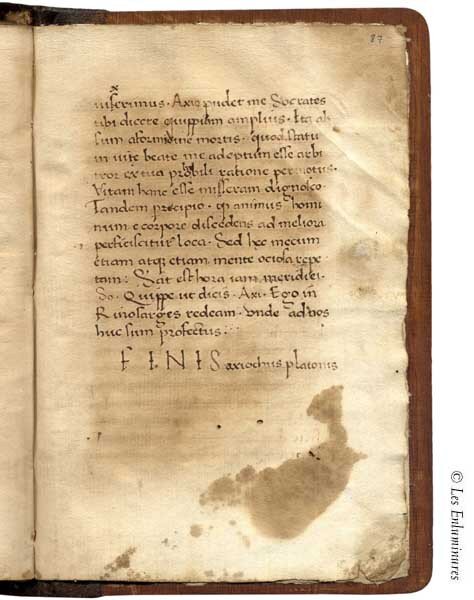 87
x
uiserimus. Axio pudet me Socrates
tibi dicere quippiam amplius. Ita ab
sum a formidine mortis. quod statu
in uite beate me adeptum esse arbi
tror ex tua probbili ratione permotus.
Vitam hanc esse misseram dignosco.
Tandem precipio. qp animus homi
num e corpore discedens ad meliora
perficiscitur loca. Sed hec mecum
etiam atqe etiam mente ociosa repe
tam. Sat est hora iam meridiei.
So. Quippe ut dicis. Axi. Ego in
Rinosarges redeam. Vnde ad uos
huc sum profectus:
FINIS axiochus platonis
© Les Enluminures